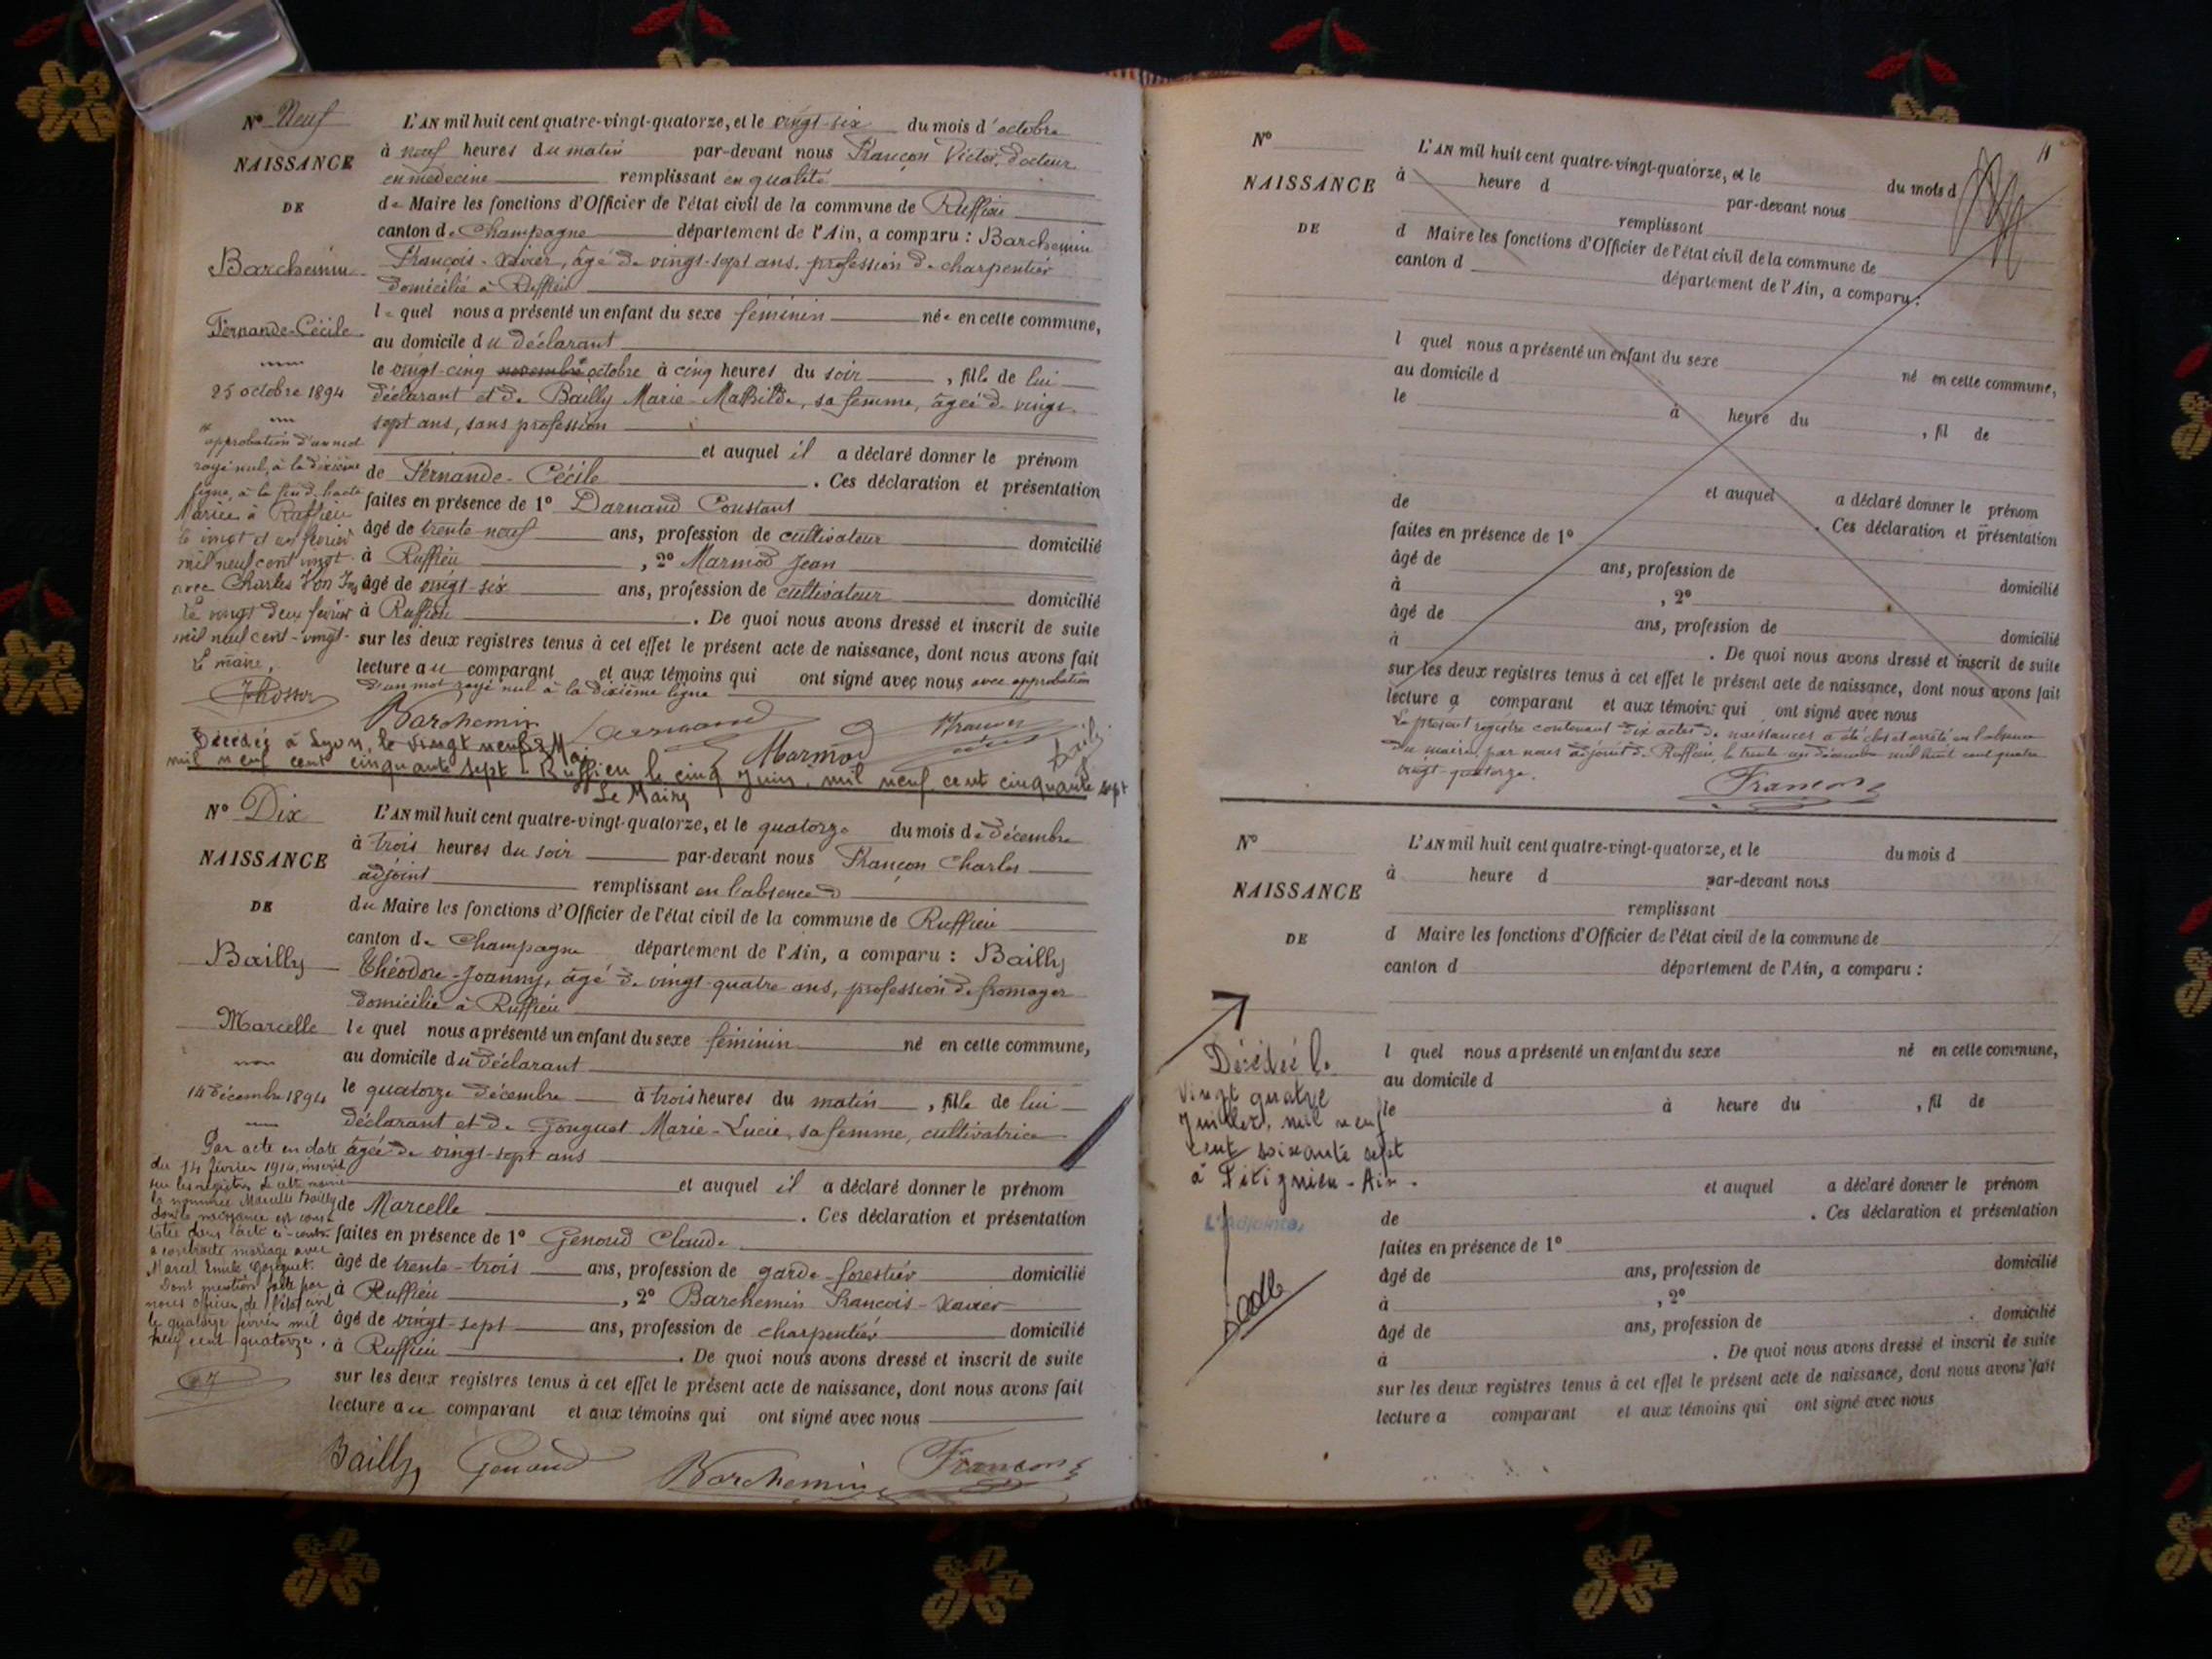 N° Neuf
NAISSANCE
DE
Barchemin
Fernande-Cécile
25 octobre 1894
approbation d'un mot
rayé nul, à la dixième
ligne, à la fin de l'acte
Mariée à Ruffieu
le vingt et un février
mil neuf cent vingt
avec Charles
Le vingt deux février
mil neuf cent-vingt-
Le maire,
L'AN mil huit cent quatre-vingt-quatorze, et le vingt-six du mois d'octobre
à neuf heures du matin par-devant nous Françon Victor, docteur
en médecine remplissant en qualité
de Maire les fonctions d'Officier de l'état civil de la commune de Ruffieu
canton de Champagne département de l'Ain, a comparu : Barchemin
François-Xavier, âgé de vingt-sept ans, profession de charpentier
domicilié à Ruffieu
le quel nous a présenté un enfant du sexe féminin née en cette commune,
au domicile du déclarant
le vingt-cinq novembre octobre à cinq heures du soir, fille de lui
déclarant et de Bailly Marie-Mathilde, sa femme, âgée de vingt-
sept ans, sans profession
et auquel il a déclaré donner le prénom
de Fernande-Cécile. Ces déclaration et présentation
faites en présence de 1° Darnand Constant
âgé de trente neuf ans, profession de cultivateur domicilié
à Ruffieu, 2° Marmod Jean
âgé de vingt-six ans, profession de cultivateur domicilié
à Ruffieu. De quoi nous avons dressé et inscrit de suite
sur les deux registres tenus à cet effet le présent acte de naissance, dont nous avons fait
lecture au comparant et aux témoins qui ont signé avec nous avec approbation
d'un mot rayé nul à la dixième ligne
Barchemin Darnand Marmod Françon
Décédée à Lyon, le vingt neuf Mai
mil neuf cent cinquante sept - Ruffieu, le cinq Juin, mil neuf cent cinquante sept
Le Maire
Bailly
N° Dix
NAISSANCE
DE
Bailly
Marcelle
14 décembre 1894
Par acte en date
du 14 février 1914, inscrit
sur les registres de cette mairie
la nommée Marcelle Bailly
dont la naissance est cons-
tatée dans l'acte ci-contre
a contracté mariage avec
Marcel Emile Gonguet.
Dont mention faite par
nous officier de l'état civil
le quatorze février mil
neuf cent quatorze.
L'AN mil huit cent quatre-vingt-quatorze, et le quatorze du mois de décembre
à trois heures du soir par-devant nous Françon Charles
adjoint remplissant en l'absence
du Maire les fonctions d'Officier de l'état civil de la commune de Ruffieu
canton de Champagne département de l'Ain, a comparu : Bailly
Théodore-Joanny, âgé de vingt-quatre ans, profession de fromager
domicilié à Ruffieu
le quel nous a présenté un enfant du sexe féminin né en cette commune,
au domicile du déclarant
le quatorze décembre à trois heures du matin, fille de lui
déclarant et de Gonguet Marie-Lucie, sa femme, cultivatrice
âgée de vingt-sept ans
et auquel il a déclaré donner le prénom
de Marcelle. Ces déclaration et présentation
faites en présence de 1° Genoud Claude
âgé de trente-trois ans, profession de garde-forestier domicilié
à Ruffieu, 2° Barchemin François-Xavier
âgé de vingt-sept ans, profession de charpentier domicilié
à Ruffieu. De quoi nous avons dressé et inscrit de suite
sur les deux registres tenus à cet effet le présent acte de naissance, dont nous avons fait
lecture au comparant et aux témoins qui ont signé avec nous
Bailly Genoud Barchemin Françon
11
N°
NAISSANCE
DE
L'AN mil huit cent quatre-vingt-quatorze, et le du mois d
à heure d par-devant nous
remplissant
d Maire les fonctions d'Officier de l'état civil de la commune de
canton d département de l'Ain, a comparu :
l quel nous a présenté un enfant du sexe né en cette commune,
au domicile d
le à heure du , fil de
et auquel a déclaré donner le prénom
de . Ces déclaration et présentation
faites en présence de 1°
âgé de ans, profession de domicilié
à , 2°
âgé de ans, profession de domicilié
à . De quoi nous avons dressé et inscrit de suite
sur les deux registres tenus à cet effet le présent acte de naissance, dont nous avons fait
lecture a comparant et aux témoins qui ont signé avec nous
Le présent registre contenant dix actes de naissances a été clos et arrêté en l'absence
du maire par nous adjoint de Ruffieu, le trente un décembre mil huit cent quatre
vingt-quatorze.
Françon
N°
NAISSANCE
DE
Décédée le
vingt quatre
Juillet, mil neuf
cent soixante sept
à Pitignieu - Ain.
L'Adjointe,
L'AN mil huit cent quatre-vingt-quatorze, et le du mois d
à heure d par-devant nous
remplissant
d Maire les fonctions d'Officier de l'état civil de la commune de
canton d département de l'Ain, a comparu :
l quel nous a présenté un enfant du sexe né en cette commune,
au domicile d
le à heure du , fil de
et auquel a déclaré donner le prénom
de . Ces déclaration et présentation
faites en présence de 1°
âgé de ans, profession de domicilié
à , 2°
âgé de ans, profession de domicilié
à . De quoi nous avons dressé et inscrit de suite
sur les deux registres tenus à cet effet le présent acte de naissance, dont nous avons fait
lecture a comparant et aux témoins qui ont signé avec nous